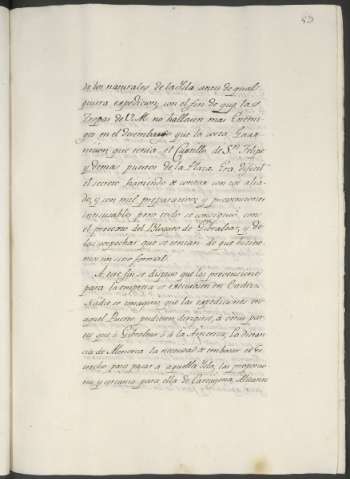 53
de los naturales de la Isla antes de qual
quiera expedicion, con el fin de que las
Tropas de V.M. no hallasen mas Enemi
gos en el desembarco que la corta Guar
nicion que tenia el Castillo de Sn. Felipe
y demas puestos de la Plaza. Era dificil
el secreto haviendo de contar con los alia
dos, y con mil preparativos y prevenciones
inescusables pero todo se consiguió con
el pretexto del Bloqueo de Gibraltar, y de
las sospechas que se tenian de que hiciese
mos un sitio formal.
A este fin se dispuso que las prevenciones
para la empresa se executasen en Cadiz.
Nadie se imaginó que las expediciones en
aquel Puerto pudiesen dirigirse à otras par
tes que à Gibraltar ó à la America. La distan
cia de Menorca la necesidad de embocar el Es
trecho para pasar a aquella Isla, las proporcio
nes y cercania para ella de Cartagena, Alicante